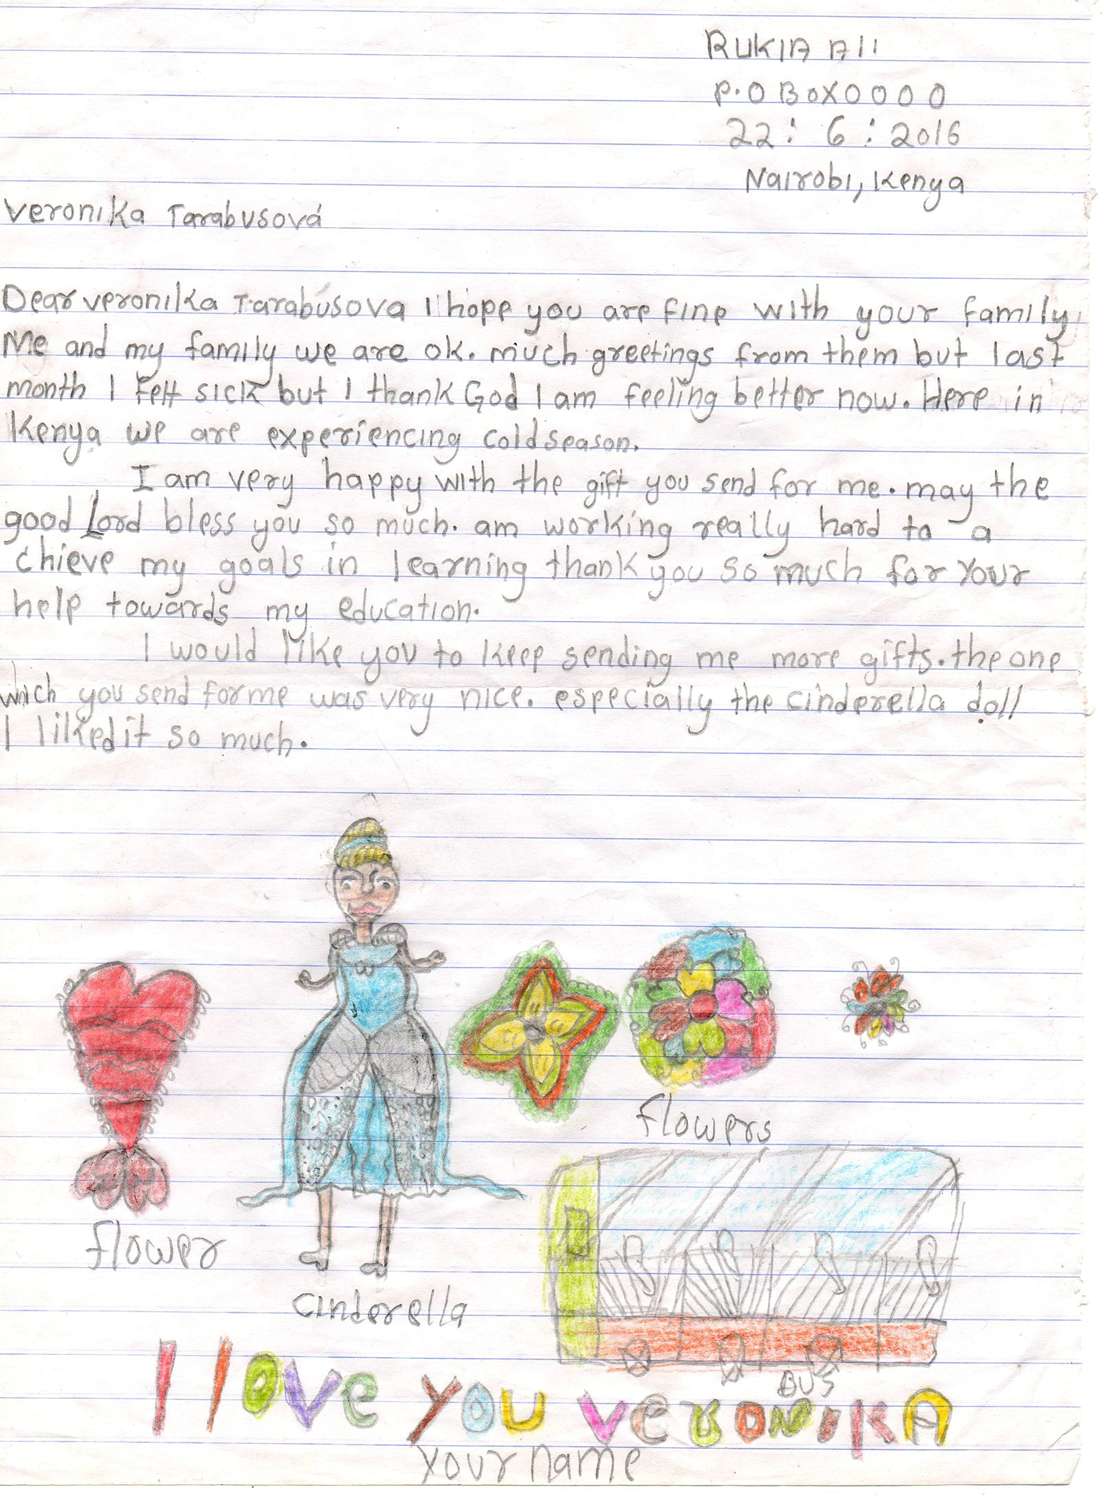 RUKIA Ali
P.O BOX 0000
22: 6: 2016
Nairobi, Kenya
Veronika Tarabusová
Dear veronika Tarabúsova I hope you are fine with your family,
Me and my family we are ok. much greetings from them but last
month I felt sick but I thank God I am feeling better now. Here in
Kenya we are experiencing cold season.
I am very happy with the gift you send for me. may the
good Lord bless you so much. am working really hard to a
chieve my goals in learning thank you so much for your
help towards my education.
I would like you to keep sending me more gifts. the one
which you send for me was very nice. especially the cinderella doll
I liked it so much.
flowers
flower
cinderella
BUS
I love you veronika
your name